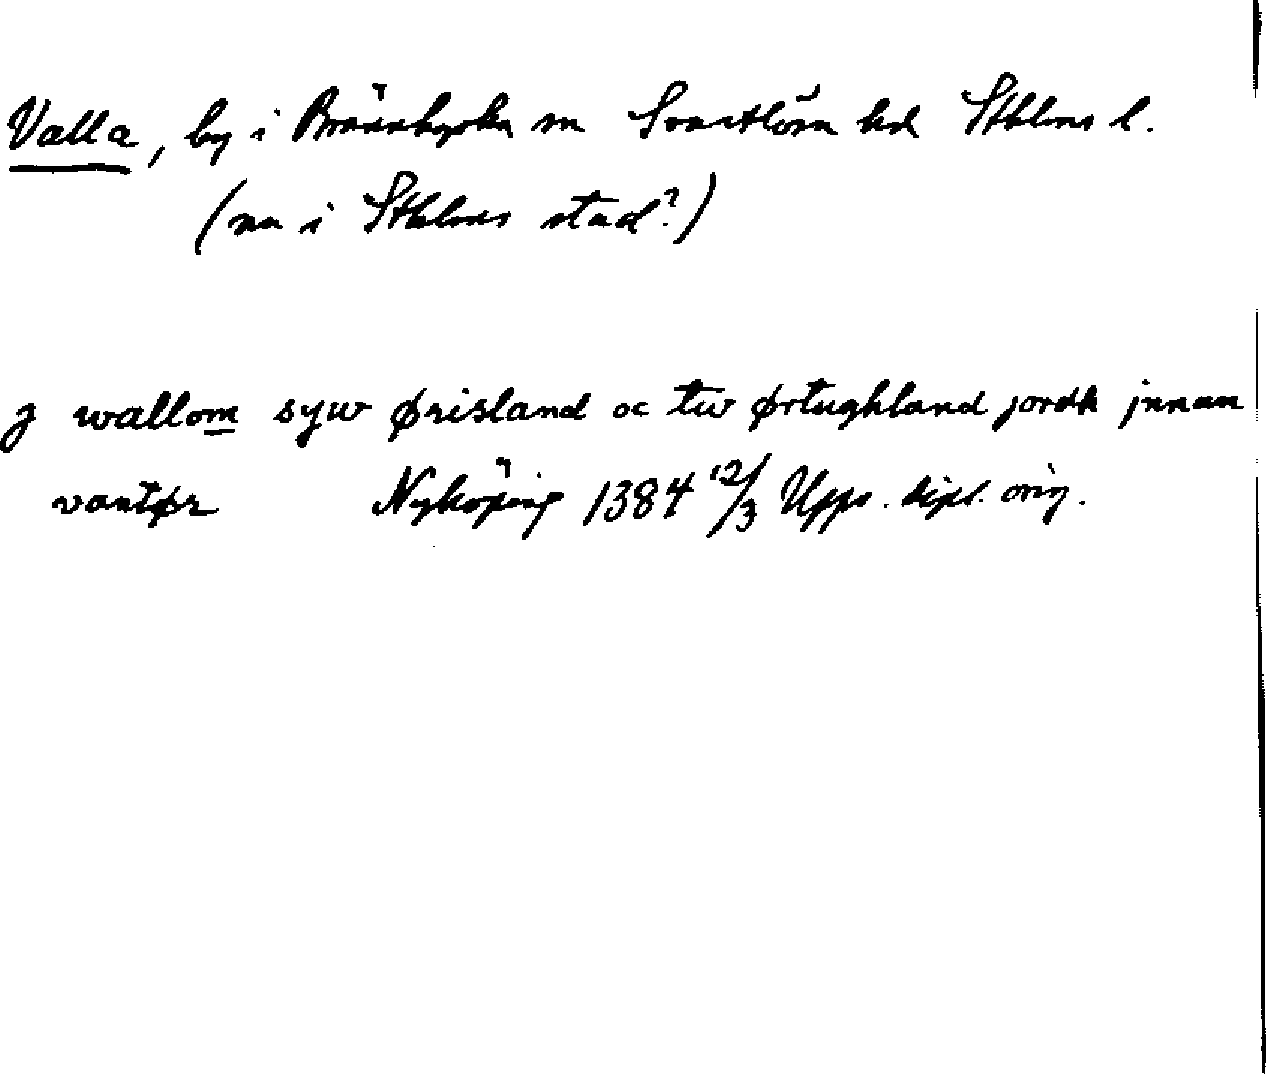 Valla, by i Brännkyrka sn Svartlösa hd Sthlms l.
(nu i Sthlms stad?)
j wallom syw ørisland oc tw ørtughland jordh jnnan
vantør Nyköping 1384 12/3 Upps. dipl. orig.